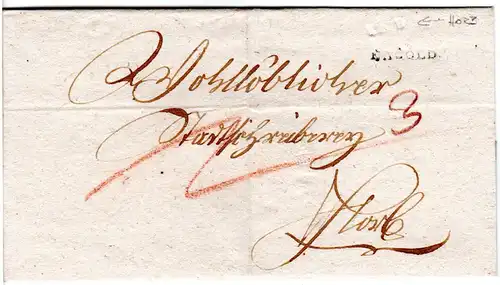 Horb
NAGOLD.
Wohllöblicher
Stadtschreiberey
3
Horb